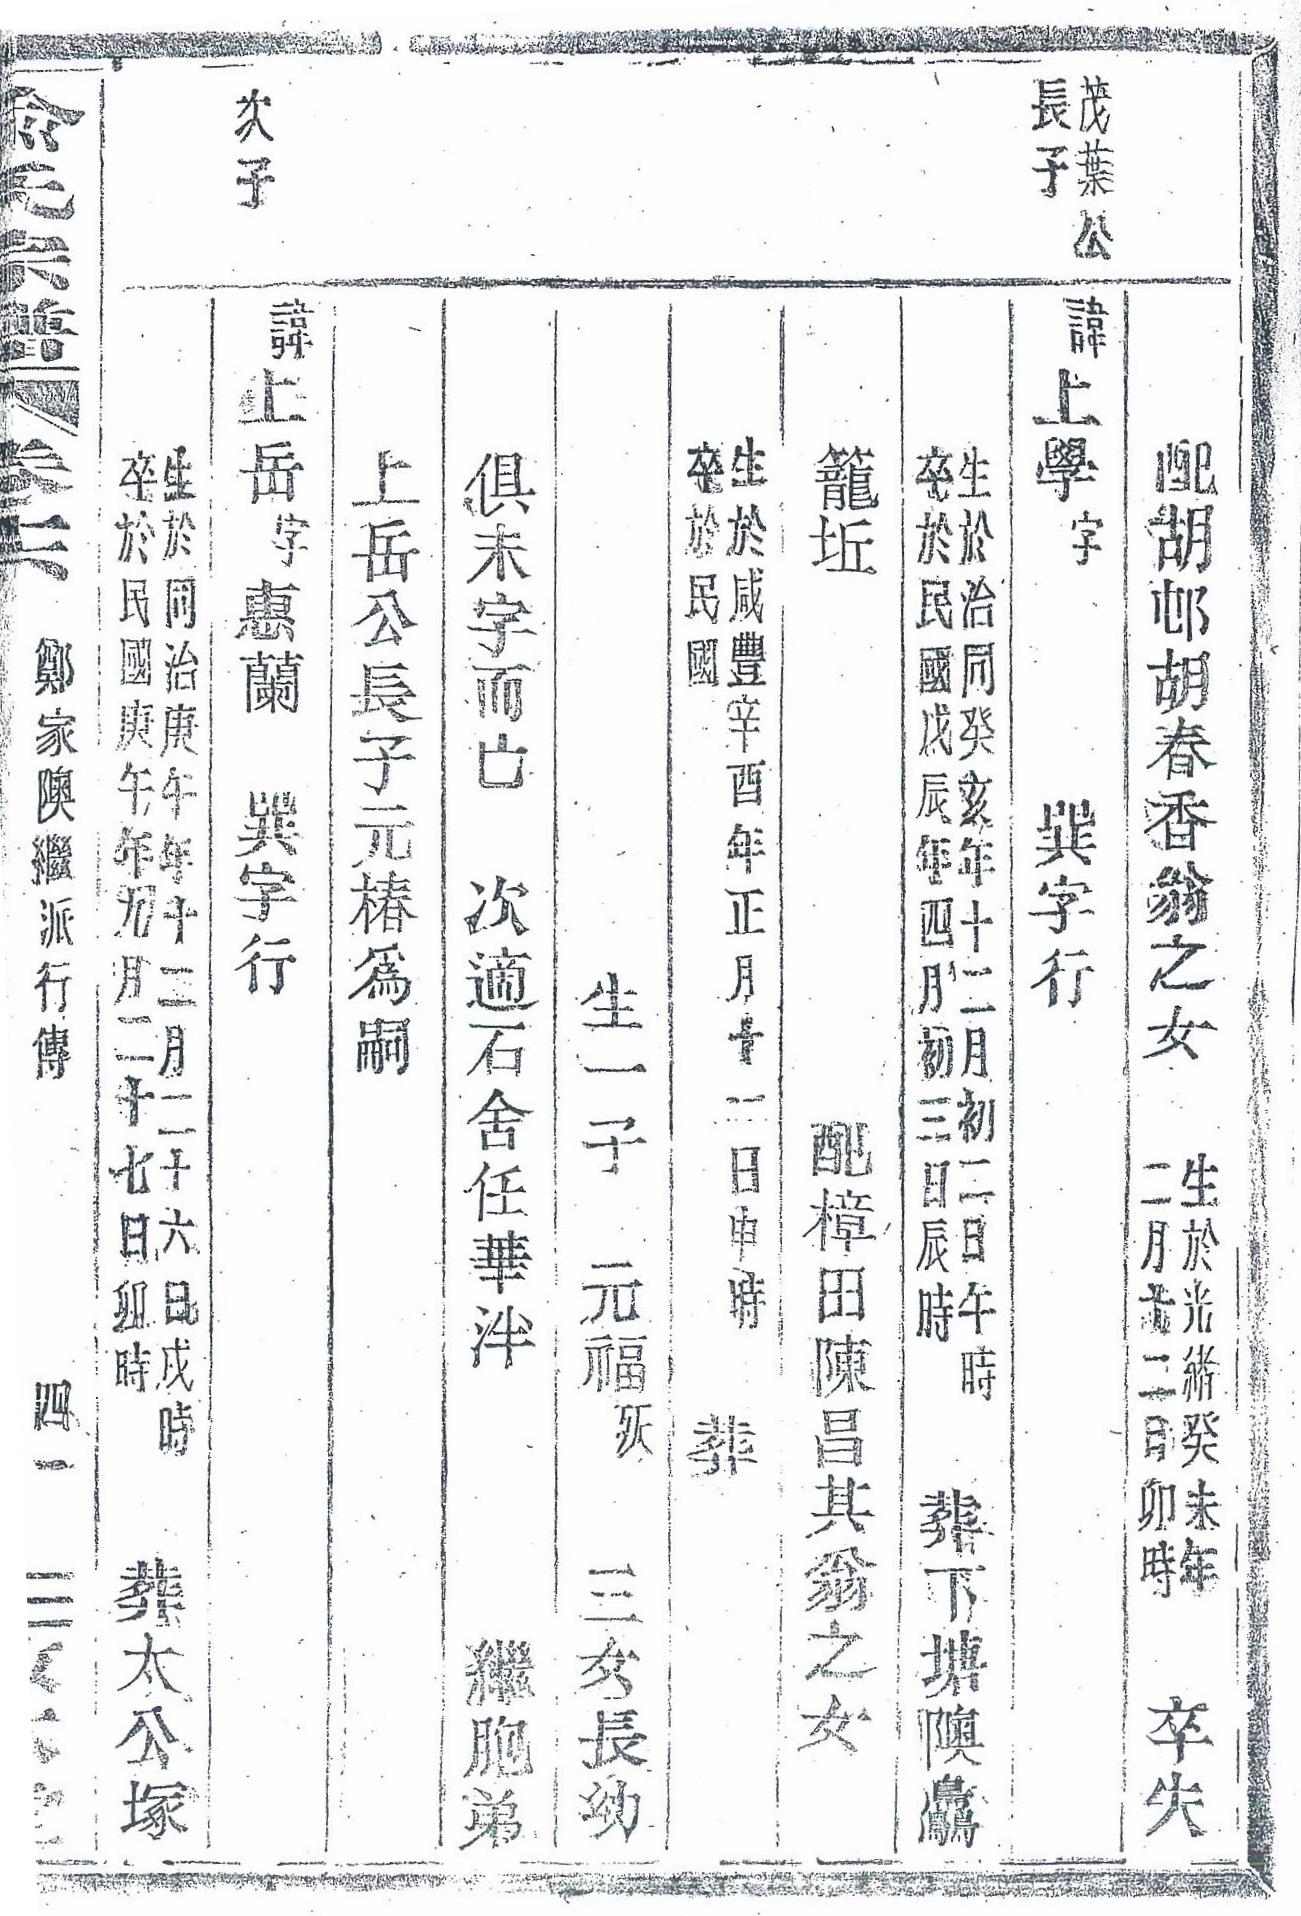 配胡邨胡春香翁之女
生於光緒癸未年
二月十二日卯時
卒失
茂葉公
長子
諱上學字
巽字行
生於治同癸亥年十二月初二日午時
卒於民國戊辰年四月初三日辰時
葬下塘隩
籠坵
配樟田陳昌其翁之女
生於咸豐辛酉年正月十一日申時
卒於民國
葬
生一子 元福殀 三女長幼
俱未字而亡 次適石舍任華泮 繼胞弟
上岳公長子元椿為嗣
次子
諱上岳字惠蘭 巽字行
生於同治庚午年十二月二十六日戌時
卒於民國庚午年九月二十七日卯時
葬太公塚
氏宗譜 卷二 鄭家隩繼派行傳 四一